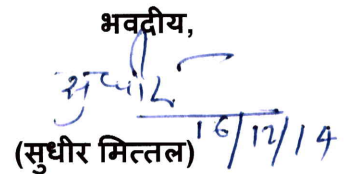 भवदीय,
सुधीर
16/12/14
(सुधीर मित्तल)